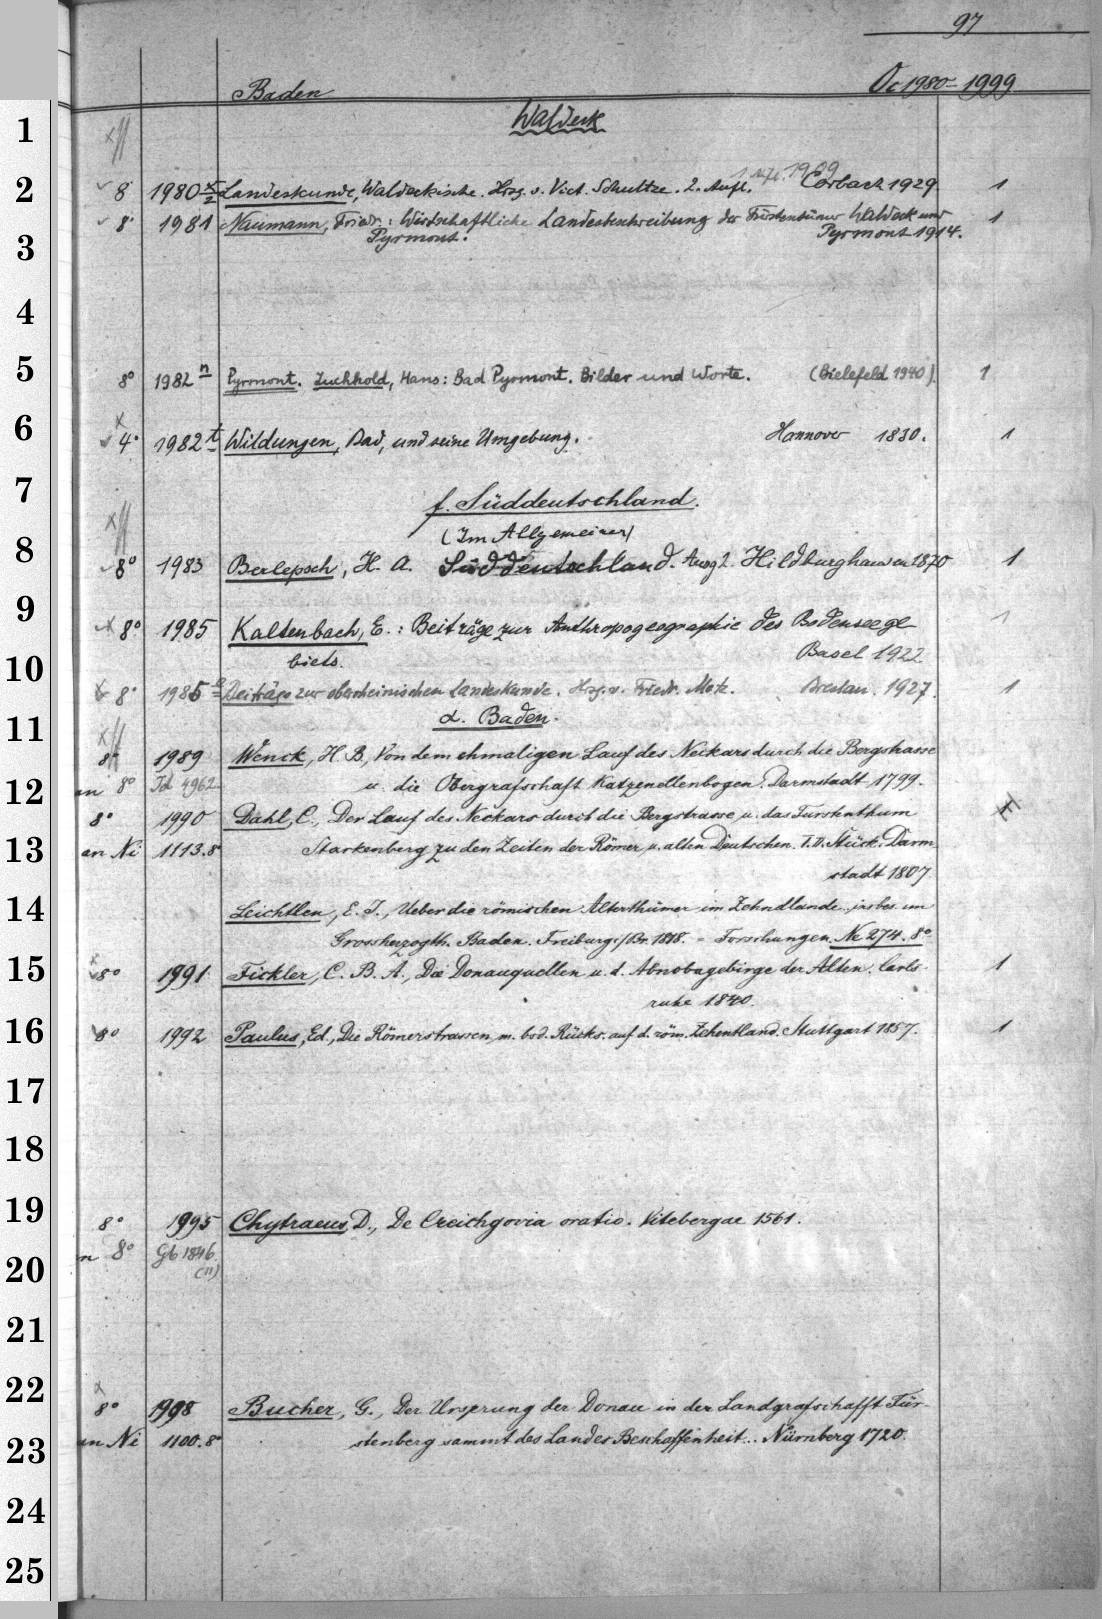 97
Baden Oc 1980-1999
Waldeck
1. Aufl. 1909
8° 1980 x/2 Landeskunde, Waldeckische. Hrsg. v. Vict. Schultze. 2. Aufl. Corbach 1929. 1
8° 1981 Naumann, Friedr.: Wirtschaftliche Landesbeschreibung der Fürstentümer Waldeck und 1
Pyrmont. Pyrmont 1914.
8° 1982 n Pyrmont. Zuchhold, Hans: Bad Pyrmont. Bilder und Worte. (Bielefeld 1940). 1
4° 1982 t Wildungen, Bad, und seine Umgebung. Hannover 1830. 1
f. Süddeutschland.
(Im Allgemeinen)
8° 1983 Berlepsch, H. A. Süddeutschland. Ausg 2. Hildburghausen 1870 1
8° 1985 Kaltenbach, E.: Beiträge zur Anthropogeographie des Bodenseege 1
biets. Basel 1922
8° 1985 Beiträge zur oberrheinischen Landeskunde. Hrsg. v. Friedr. Metz. Breslau. 1927. 1
α. Baden.
8° 1989 Wenck, H. B., Von dem ehmaligen Lauf des Neckars durch die Bergstrasse
an 8° Jd 4962 u. die Obergrafschaft Katzenellenbogen. Darmstadt 1799.
8° 1990 Dahl, C., Der Lauf des Neckars durch die Bergstrasse u. das Fürstenthum
an Ni 1113.8° Starkenberg zu den Zeiten der Römer u. alten Deutschen. T. II. Stück. Darm
stadt 1807.
Leichtlen, E. J., Ueber die römischen Alterthümer im Zehndlande, insbes. im
Grossherzogth. Baden. Freiburg i/Br. 1818. = Forschungen. Ne 274. 8°
8° 1991 Fickler, C. B. A., Die Donauquellen u. d. Abnobagebirge der Alten. Carls- 1
ruhe 1840.
8° 1992 Paulus, Ed., Die Römerstrassen m. bes. Rücks. auf d. röm. Zehentland. Stuttgart 1857. 1
8° 1995 Chytraeus, D., De Creichgovia oratio. Vitebergae 1561.
an 8° Gb 1846
(n)
8° 1998 Bucher, G., Der Ursprung der Donau in der Landgrafschafft Für-
an Ni 1100.8° stenberg sammt des Landes Beschaffenheit... Nürnberg 1720.
1
2
3
4
5
6
7
8
9
10
11
12
13
14
15
16
17
18
19
20
21
22
23
24
25